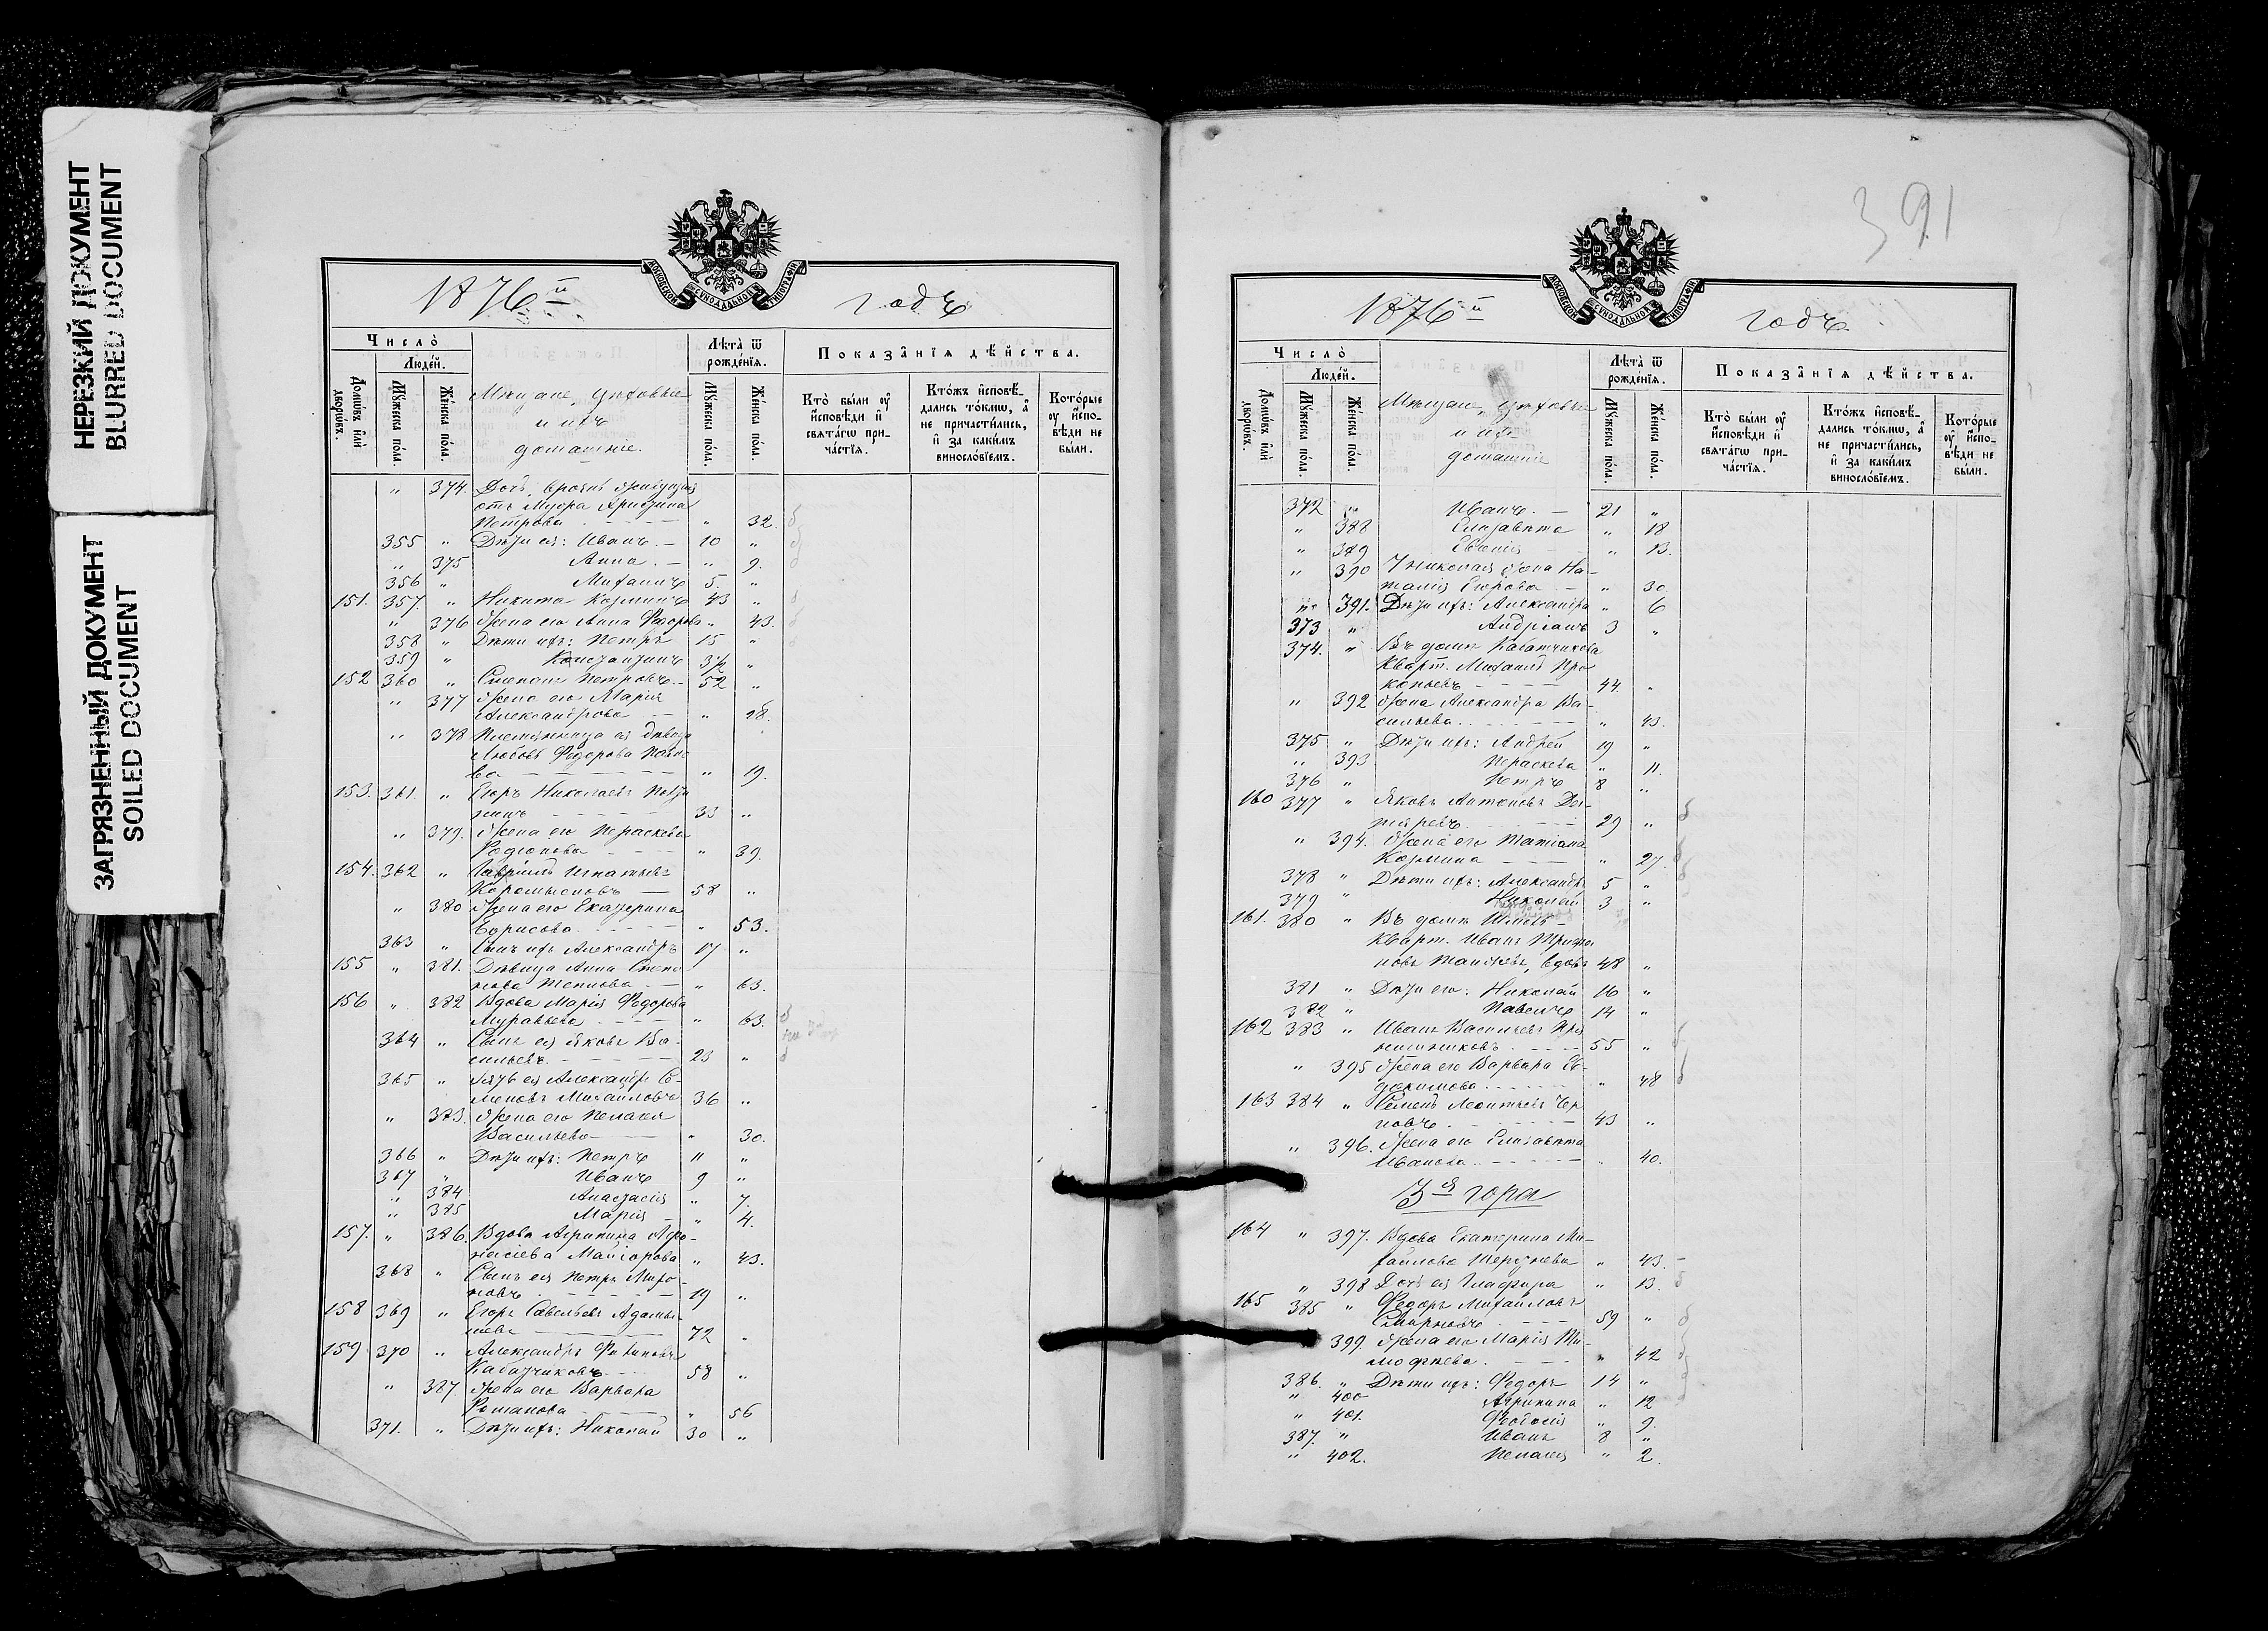 НЕРЕЗКИЙ ДОКУМЕНТ
BLURRED DOCUMENT
ЗАГРЯЗНЕННЫЙ ДОКУМЕНТ
SOILED DOCUMENT
МОСКОВСКОЙ СѴНОДАЛЬНОЙ ТИПОГРАФІИ
1876й годъ
Число̀
Людéй.
Домѡ́въ и҆лѝ дворѡ́въ.
Мꙋ́жеска по́ла.
Же́нска по́ла.
Мѣщане, цеховые
и ихъ
домашніе.
Лѣта̀ ѿ рожде́нїѧ.
Мꙋ́жеска по́ла.
Же́нска по́ла.
Показа̑нїѧ дѣ́йства.
Кто̀ бы́ли ᲂу҆ и҆сповѣ́ди и҆ свѧта́гѡ прича́стїѧ.
Кто́жъ и҆сповѣ́дались то́кмѡ, а҆ не причасти́лись, и҆ за каки́мъ винослóвїемъ.
Кото́рые ᲂу҆ и҆сповѣ́ди не бы́ли.
" 374. Дочь, врознь живущая
отъ мужа
Петрова " 32.
355 " Дѣти ея: Иванъ 10 "
" 375 Анна " 9.
356 " Михаилъ 5. "
151. 357. " Никита Козминъ 43 "
" 376 Жена его Анна Федорова " 43.
358 " Дѣти ихъ: Петръ 15 "
359 " Константинъ 3½ "
152 360 " Степанъ Петровъ 52 "
" 377 Жена его Марія
Александрова " 28.
" 378 Племянница ея дѣвица
Любовь Федорова
ва " 19.
153. 361. " Егоръ Николаевъ
33 "
" 379. Жена его Параскева
Родіонова " 39.
154. 362 " Гавріилъ Игнатьевъ
Коромысловъ 58 "
" 380 Жена его Екатерина
Борисова " 53.
363 " Сынъ ихъ Александръ 17 "
155 " 381. Дѣвица Анна Степа-
нова " 63.
156 " 382 Вдова Марія Федорова
Муравьева " 63.
364 " Сынъ ея Яковъ Ва-
сильевъ 23 "
365 " Зять ея Александръ Се-
меновъ Михайловъ 36 "
" 383. Жена его Пелагея
Васильева " 30.
366 " Дѣти ихъ: Петръ 11 "
367 " Иванъ 9 "
" 384 Анастасія " 7.
" 385 Марія " 4.
157. " 386. Вдова Агрипина Афо-
насіева Маіорова " 43.
368 " Сынъ ея Петръ Миро-
новъ 19 "
158 369 " Егоръ Савельевъ
72 "
159 370 " Александръ Филиповъ
Кабатчиковъ 58 "
" 387. Жена его Варвара
Романова " 56
371. " Дѣти ихъ: Николай 30 "
391
МОСКОВСКОЙ СѴНОДАЛЬНОЙ ТИПОГРАФІИ
1876й годъ
Число̀
Людéй.
Домѡ́въ и҆лѝ дворѡ́въ.
Мꙋ́жеска по́ла.
Же́нска по́ла.
Мѣщане, цеховые
и ихъ
домашніе
Лѣта̀ ѿ рожде́нїѧ.
Мꙋ́жеска по́ла.
Же́нска по́ла.
Показа̑нїѧ дѣ́йства.
Кто̀ бы́ли ᲂу҆ и҆сповѣ́ди и҆ свѧта́гѡ прича́стїѧ.
Кто́жъ и҆сповѣ́дались то́кмѡ, а҆ не причасти́лись, и҆ за каки́мъ винослóвїемъ.
Кото́рые ᲂу҆ и҆сповѣ́ди не бы́ли.
372 " Иванъ 21 "
" 388 Елизавета " 18
" 389 Евгенія " 13.
" 390 У Николая жена На-
талія Егорова " 30.
" 391. Дѣти ихъ: Александра " 6
373 " Андріанъ 3 "
374. " Въ домѣ Кабатчикова
кварт. Михаилъ Про-
копьевъ 44. "
" 392 Жена Александра Ва-
сильева " 43.
375 " Дѣти ихъ: Андрей 19 "
" 393 Параскева " 11.
376 " Петръ 8 "
160 377 " Яковъ Антоновъ
29 "
" 394. Жена его Татіана
Козмина " 27.
378 " Дѣти ихъ: Александръ 5 "
379 " Николай 3 "
161. 380 " Въ домѣ
кварт. Иванъ Трифо-
новъ вдовъ 48 "
381 " Дѣти его: Николай 16 "
382 " Павелъ 14 "
162 383 " Иванъ Васильевъ
55 "
" 395 Жена его Варвара Ев-
докимова " 48
163 384 " Семенъ Леонтьевъ Чер-
новъ 43 "
" 396. Жена его Елизавета
Иванова " 40.
3я гора
164 " 397. Вдова Екатерина Ми-
хайлова " 43.
" 398 Дочь ея Глафира " 13.
165 385 " Федоръ Михайловъ
Смирновъ 59 "
399. Жена его Марія Ти-
мофѣева " 42
386. " Дѣти ихъ: Федоръ 14 "
" 400 Агрипина " 12
" 401. Феодосія " 9.
387. " Иванъ 8 "
" 402. Пелагея " 2.